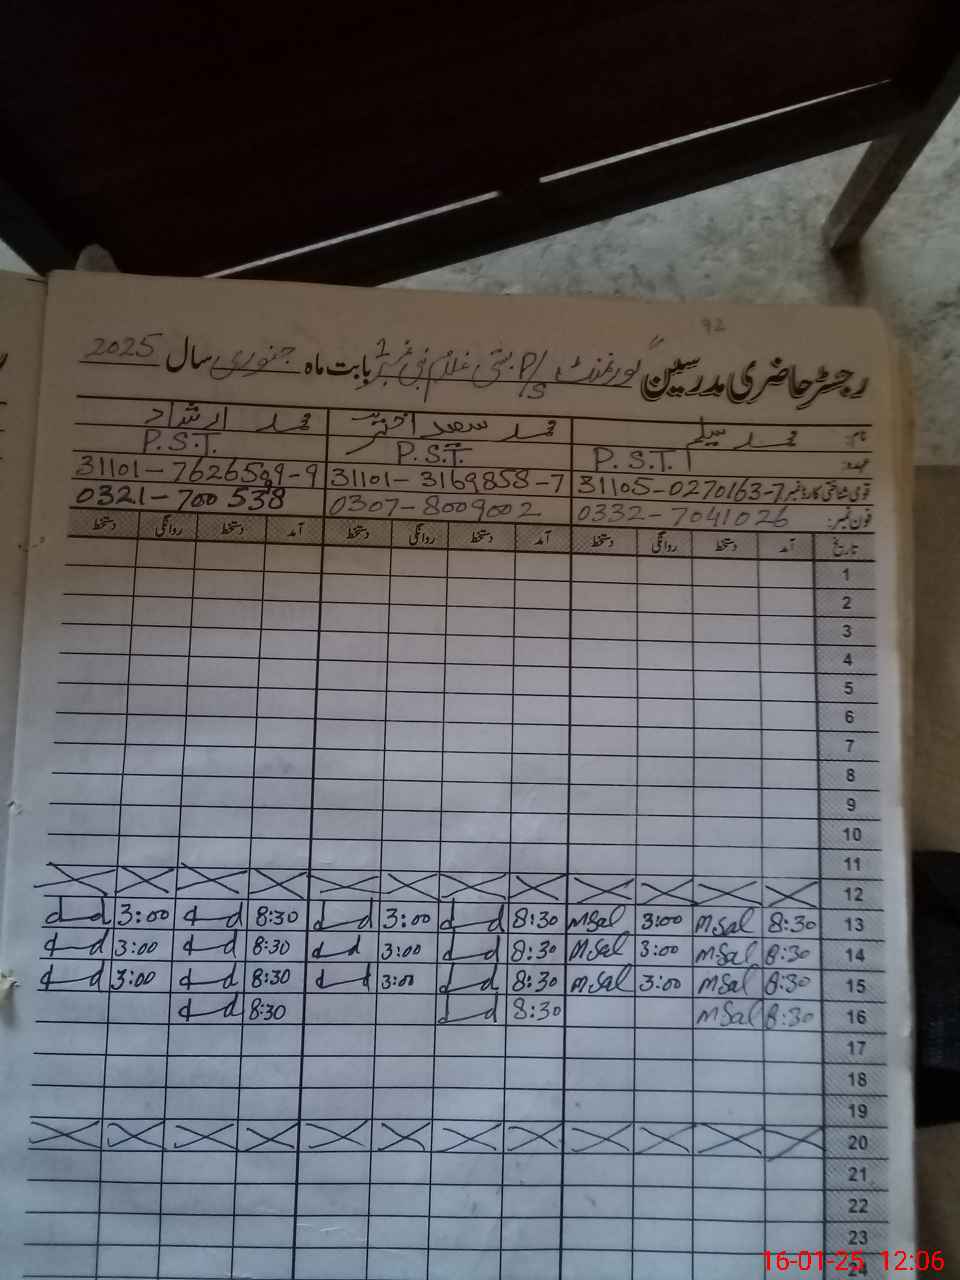 92
رجسٹر حاضری مدرسین گورنمنٹ P/S بستی غلام نبی نمبر 2 بابت ماہ جنوری سال 2025
نام: محمد سلیم محمد سعید اختر محمد ارشاد
عہدہ: P.S.T P.S.T. P.S.T.
قومی شناختی کارڈ نمبر 31105-0270163-7 31101-3169858-7 31101-7626589-9
فون نمبر: 0332-7041026 0307-8009002 0321-700538
تاریخ آمد دستخط روانگی دستخط آمد دستخط روانگی دستخط آمد دستخط روانگی دستخط
1
2
3
4
5
6
7
8
9
10
11
12
13 8:30 MSal 3:00 MSal 8:30 3:00 8:30 3:00
14 8:30 MSal 3:00 MSal 8:30 3:00 8:30 3:00
15 8:30 MSal 3:00 MSal 8:30 3:00 8:30 3:00
16 8:30 MSal 8:30 8:30
17
18
19
20
21
22
23
24
16-01-25 12:06